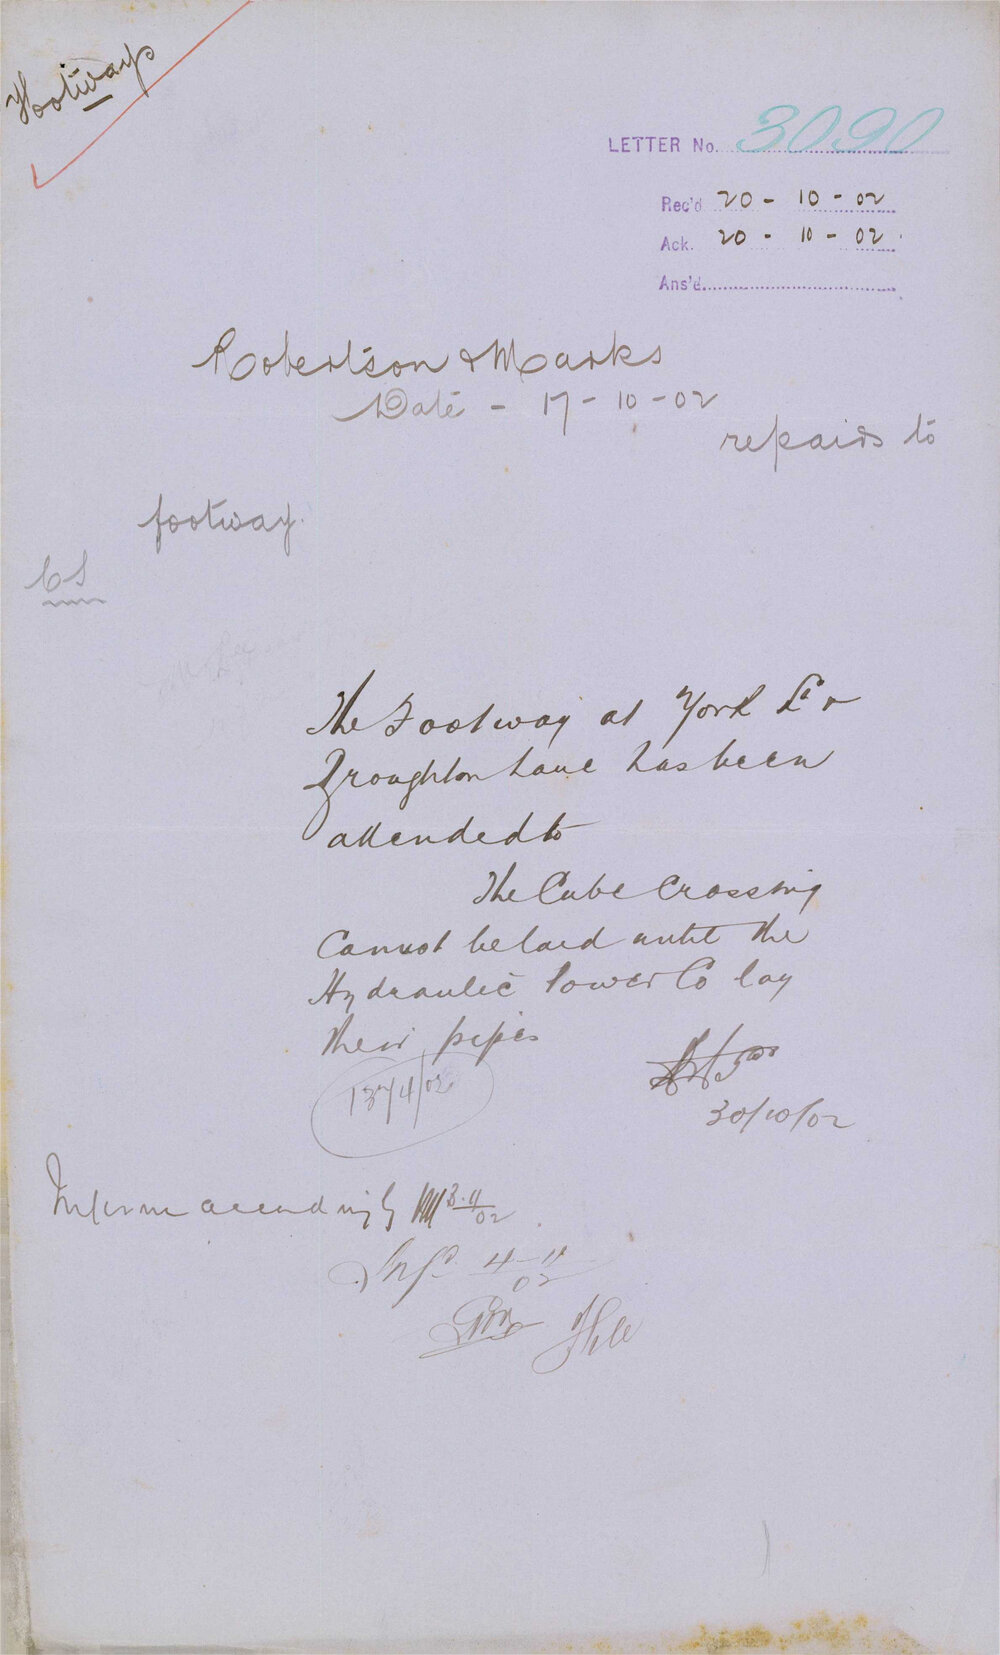 Footways
LETTER No. 3090
Rec'd 20 - 10 - 02
Ack. 20 - 10 - 02
Ans'd
Robertson & Marks
Date - 17 - 10 - 02
repairs to
footway.
CS
The Footway at York St &
Broughton Lane has been
attended to
The Cube Crossing
Cannot be laid until the
Hydraulic Power Co lay
their pipes
1374/02
30/10/02
Inform accordingly 3.11/02
Inf'd 4-11/02
File